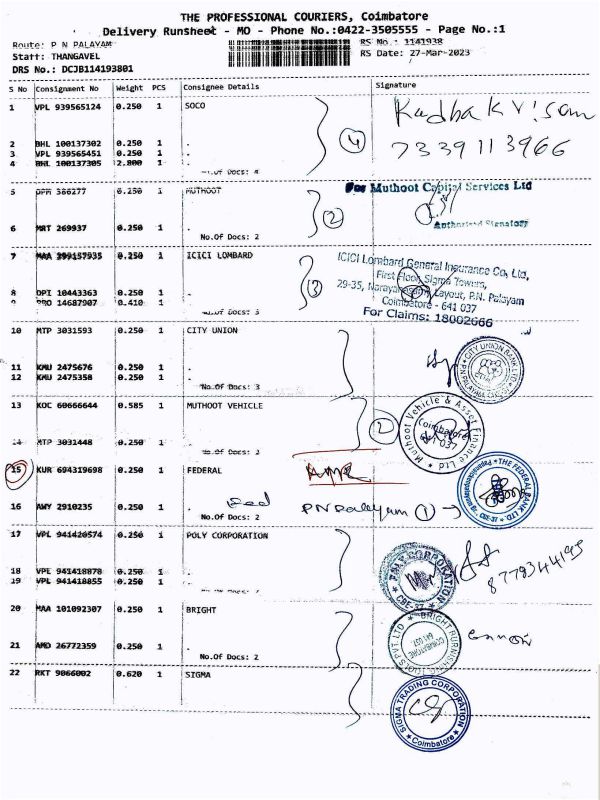 THE PROFESSIONAL COURIERS, Coimbatore
Delivery Runsheet - MO - Phone No.:0422-3505555 - Page No.:1
Route: P N PALAYAM
RS No.: 1141938
Staff: THANGAVEL
RS Date: 27-Mar-2023
DRS No.: DCJB114193801
S No Consignment No Weight PCS Consignee Details Signature
1 VPL 939565124 0.250 1 SOCO
2 BHL 100137302 0.250 1 .
3 VPL 939565451 0.250 1 .
4 BHL 100137305 2.800 1 .
No.Of Docs: 4
4
7339113966
5 386277 0.250 1 MUTHOOT
For Muthoot Capital Services Ltd
Authorised Signatory
2
6 MRT 269937 0.250 1 .
No.Of Docs: 2
7 MAA 399157935 0.250 1 ICICI LOMBARD
ICICI Lombard General Insurance Co, Ltd,
First Floor, Sigma Towers,
29-35, Layout, P.N. Palayam
Coimbatore - 641 037
For Claims: 18002666
8 OPI 10443363 0.250 1 .
9 PRO 14687907 0.410 1 .
No.Of Docs: 3
3
10 MTP 3031593 0.250 1 CITY UNION
CITY UNION BANK LTD
11 KMU 2475676 0.250 1 .
12 KMU 2475358 0.250 1 .
No.Of Docs: 3
13 KOC 60666644 0.585 1 MUTHOOT VEHICLE
2
Muthoot Vehicle & Asset Finance Ltd
Coimbatore
641 037
14 MTP 3031448 0.250 1 .
No.Of Docs: 2
15 KUR 694319698 0.250 1 FEDERAL
THE FEDERAL BANK LTD.
CBE-37
16 AWY 2910235 0.250 1 .
No.Of Docs: 2
PN Palayam 1
17 VPL 941420574 0.250 1 POLY CORPORATION
CORPORATION
CBE-37
18 VPL 941418878 0.250 1 .
19 VPL 941418855 0.250 1 .
20 MAA 101092307 0.250 1 BRIGHT
COIMBATORE
641 037
21 AMD 26772359 0.250 1 .
No.Of Docs: 2
22 RKT 9066002 0.620 1 SIGMA
SIGMA TRADING CORPORATION
Coimbatore